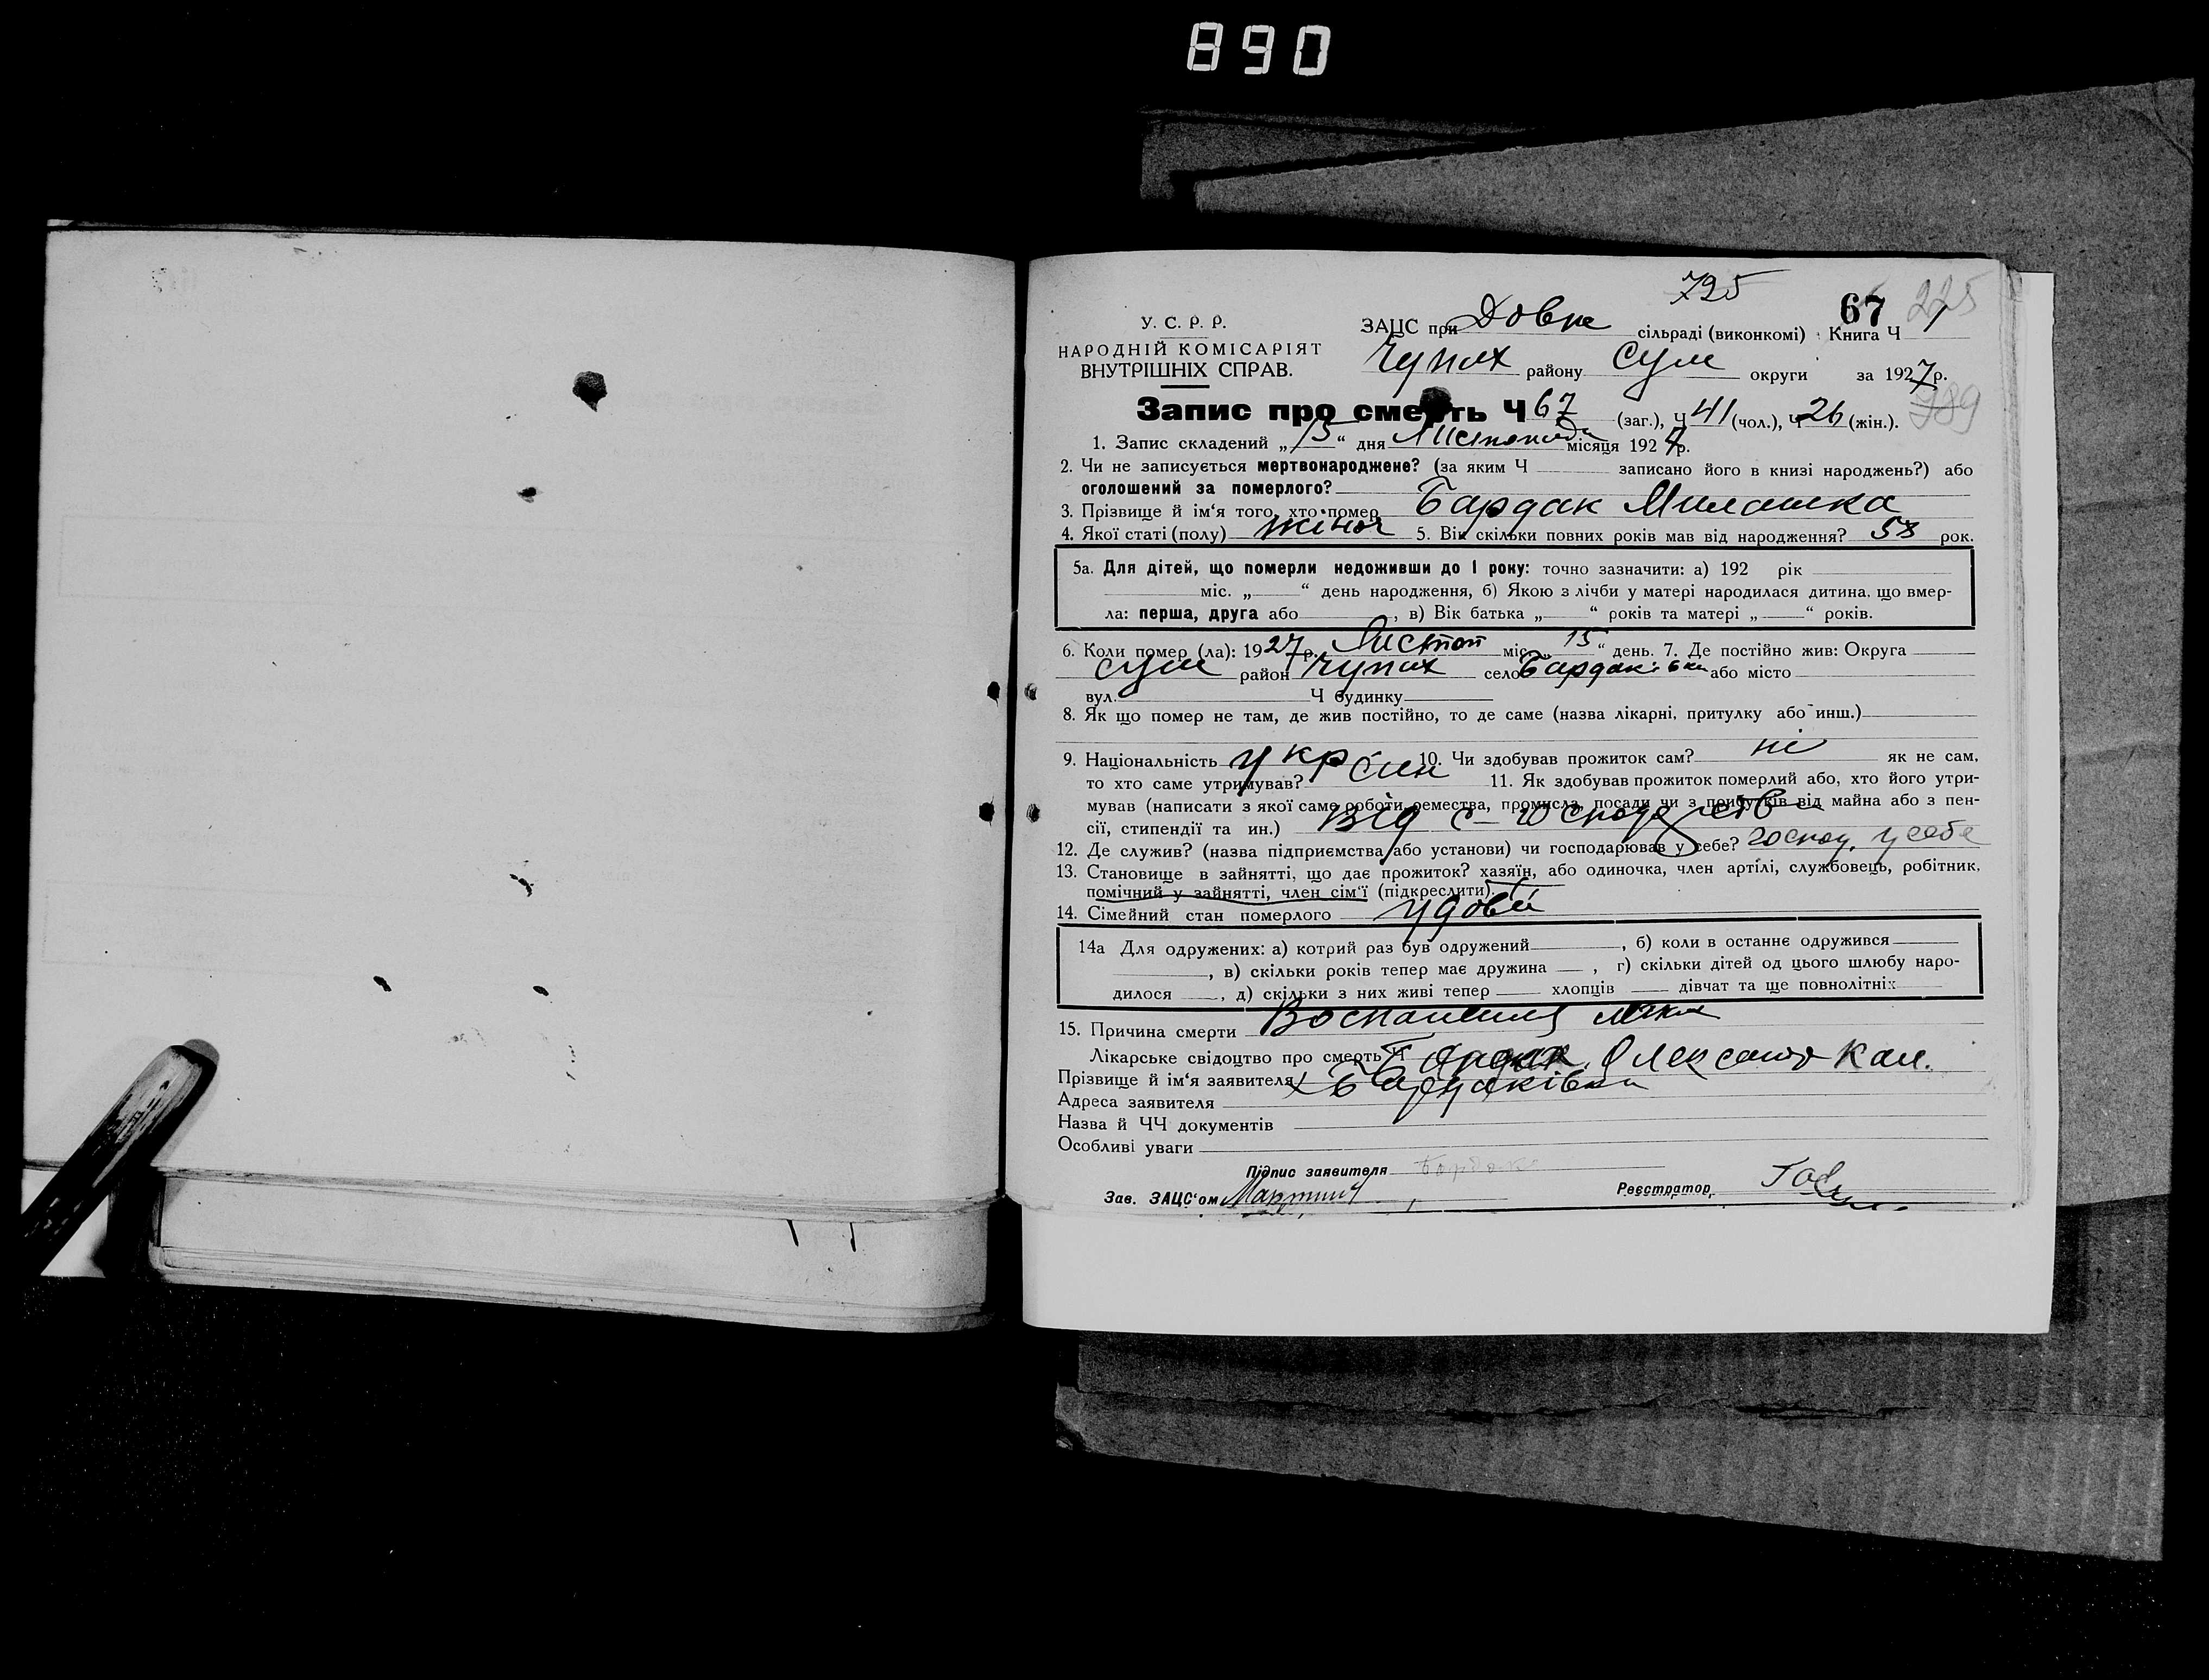 890
795
67 225
У. С. Р. Р.
НАРОДНІЙ КОМІСАРІЯТ
ВНУТРІШНІХ СПРАВ.
ЗАЦС при Довж сільраді (виконкомі) Книга Ч
Чупах району Сум округи за 1927 р.
989
Запис про смерть Ч 67 (заг.), Ч 41 (чол.), Ч 26 (жін.).
1. Запис складений „15“ дня Листопада місяця 1927 р.
2. Чи не записується мертвонароджене? (за яким Ч записано його в книзі народжень?) або
оголошений за померлого?
3. Прізвище й ім'я того, хто помер Бардак Милашка
4. Якої статі (полу) жіноч 5. Вік скільки повних років мав від народження? 58 рок.
5а. Для дітей, що померли недоживши до 1 року: точно зазначити: а) 192 рік
міс. „ “ день народження, б) Якою з лічби у матері народилася дитина, що вмер-
ла: перша, друга або , в) Вік батька „ “ років та матері „ “ років.
6. Коли помер (ла): 1927 р. Листоп міс. „15“ день. 7. Де постійно жив: Округа
Сум район Чупах село Бардаківка або місто
вул. Ч будинку
8. Як що помер не там, де жив постійно, то де саме (назва лікарні, притулку або инш.)
9. Національність Укр 10. Чи здобував прожиток сам? ні як не сам,
то хто саме утримував? Син 11. Як здобував прожиток померлий або, хто його утри-
мував (написати з якої саме роботи, ремества, промисла, посади чи з прибутків від майна або з пен-
сії, стипендії та ин.) Від с-господарств
12. Де служив? (назва підприємства або установи) чи господарював у себе? господ. у себе
13. Становище в зайнятті, що дає прожиток? хазяїн, або одиночка, член артілі, службовець, робітник,
помічний у зайнятті, член сім'ї (підкреслити).
14. Сімейний стан померлого удова
14а Для одружених: а) котрий раз був одружений , б) коли в останнє одружився
, в) скільки років тепер має дружина , г) скільки дітей од цього шлюбу наро-
дилося , д) скільки з них живі тепер хлопців дівчат та ще повнолітніх
15. Причина смерти Воспаление
Лікарське свідоцтво про смерть Ч
Прізвище й ім'я заявителя Бардак Олександ Кал.
Адреса заявителя х Бардаківка
Назва й ЧЧ документів
Особливі уваги
Підпис заявителя Бардак
Зав. ЗАЦС'ом Реєстратор